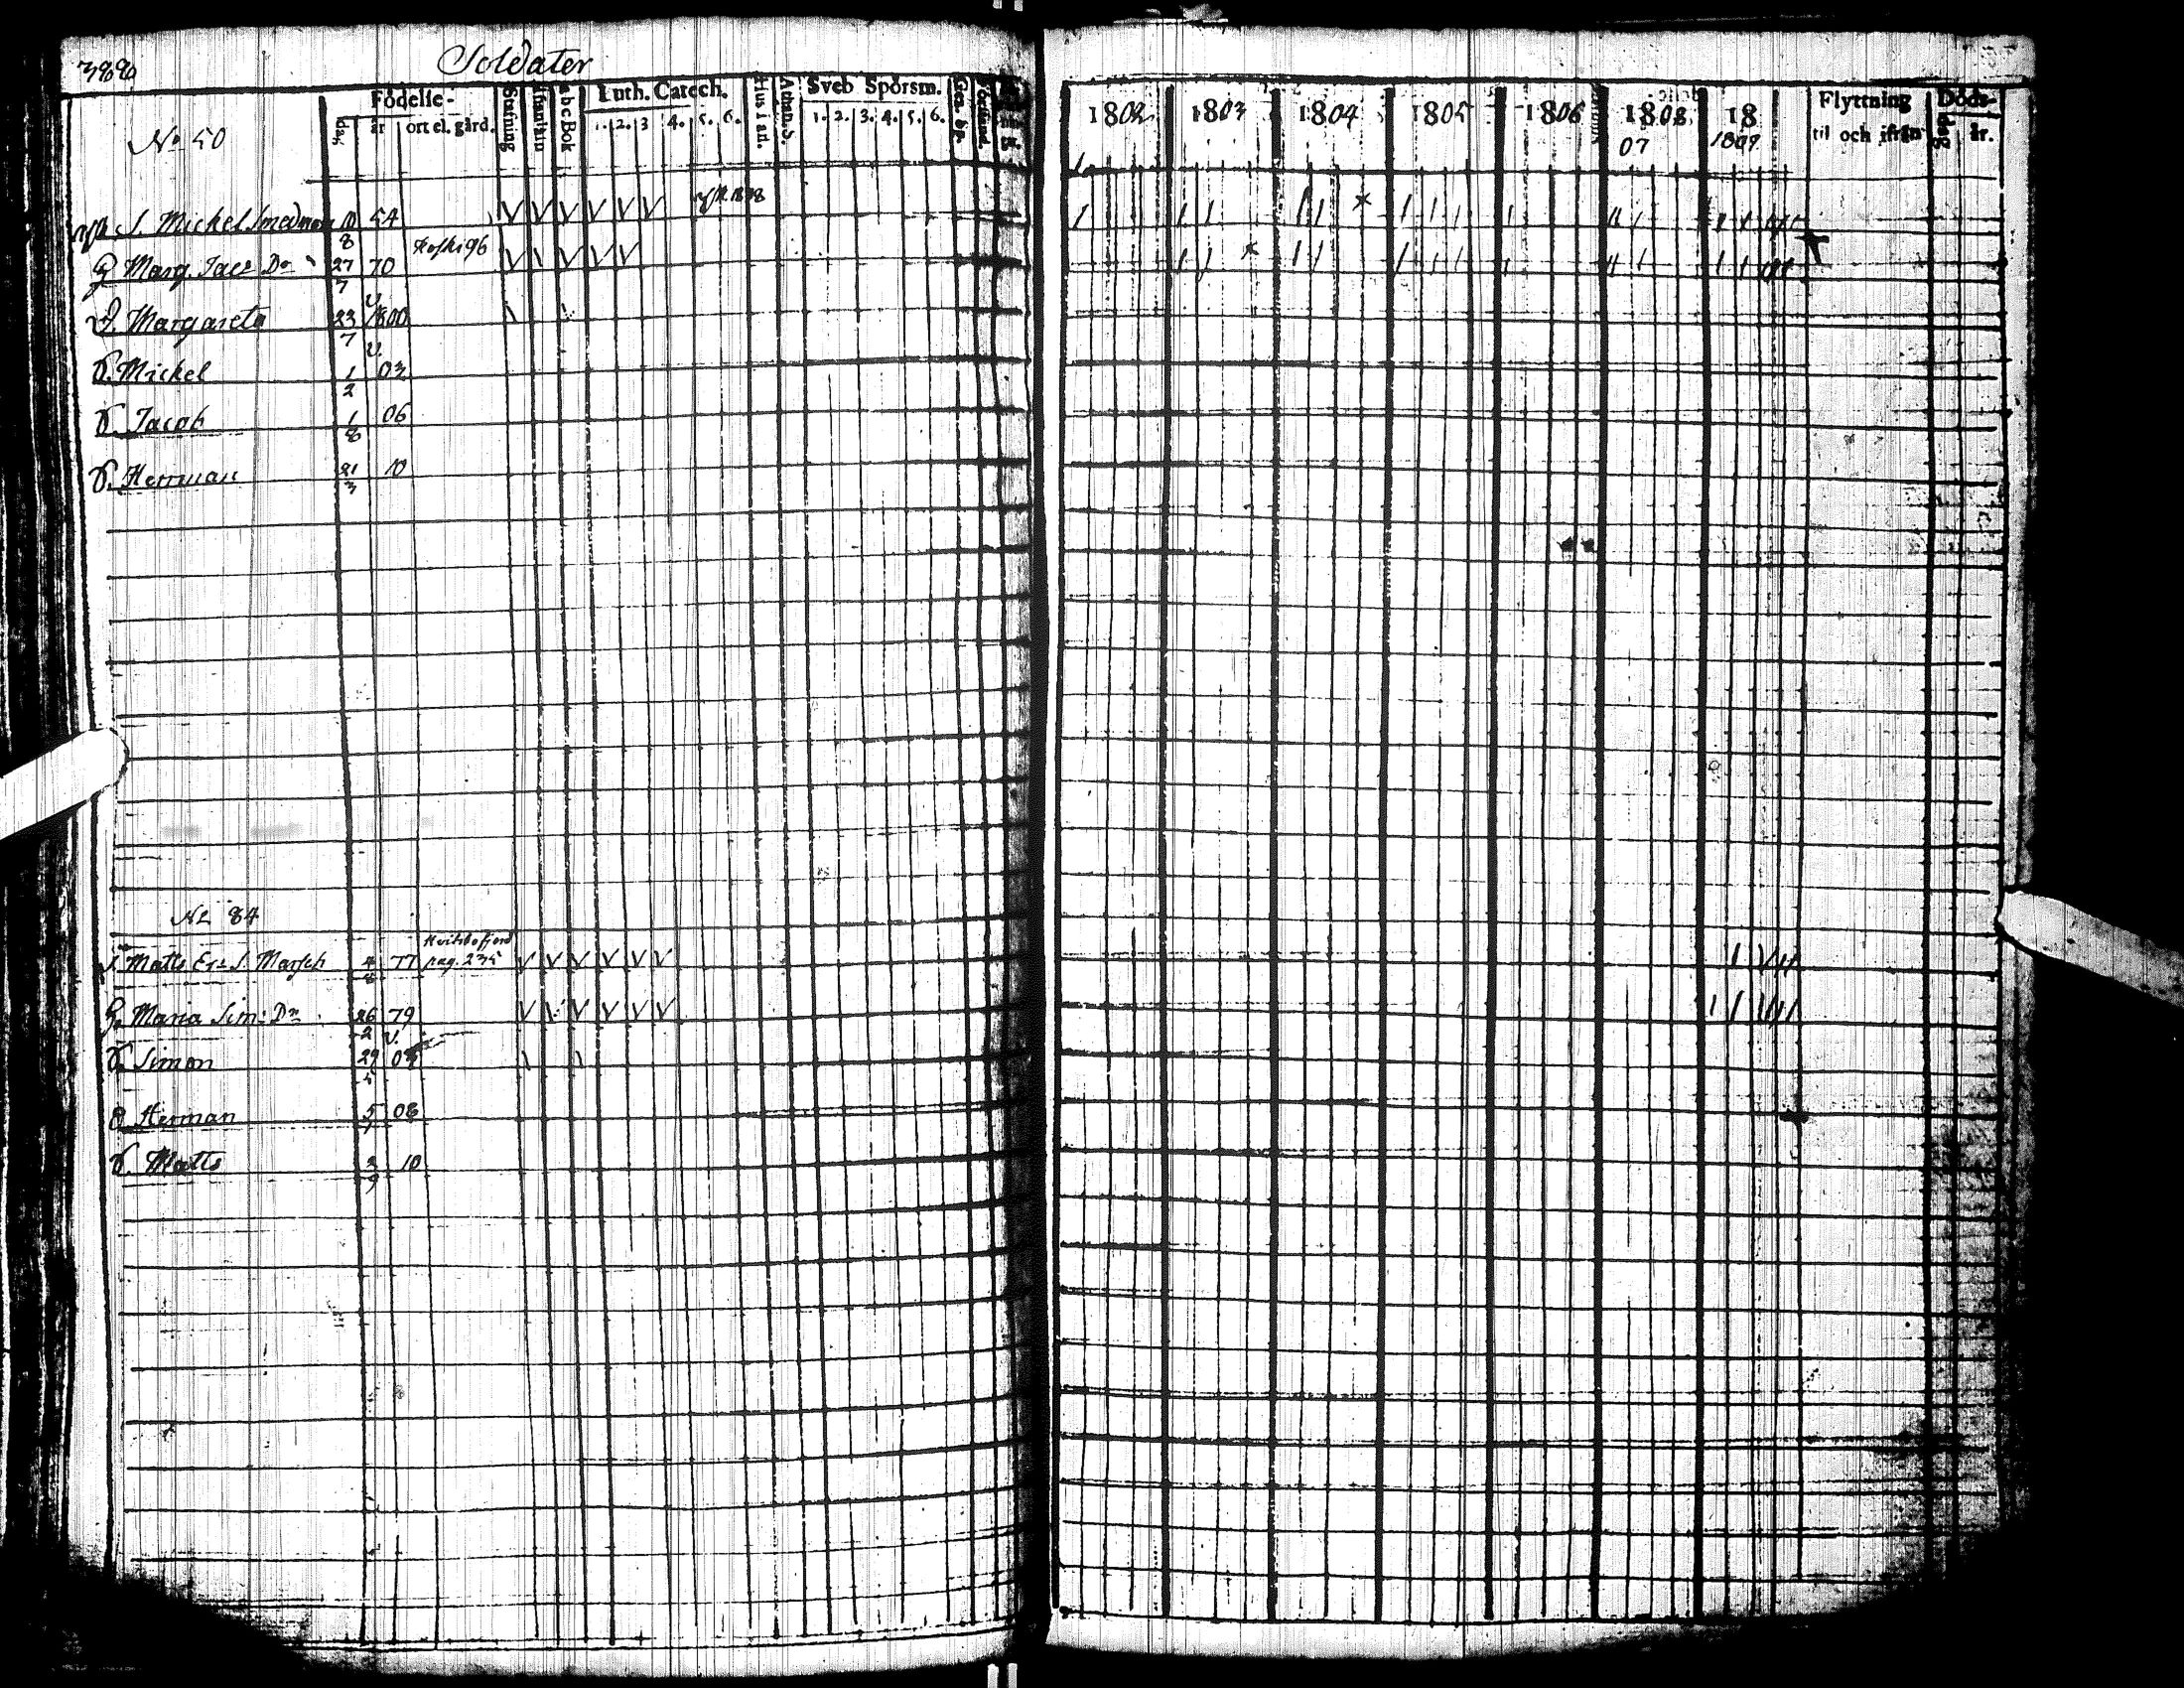 388 Soldater
Födelse- Stafning Abc Bok Luth. Catech. Athan. S. Sveb Spörsm.
No 50 dag år ort el. gård. 1. 2. 3 4. 5. 6. 1. 2. 3. 4. 5. 6.
1802 1803 1804 1805 1806 1808 18 Flyttning Döds-
07 1809 til och ifrån dag år.
S. Mickel Smedman 10/8 54
H. Marg. Jacs Dr 27/7 70 Koski 96
D. Margareta 23/7 1800 v.
S. Mickel 1/2 03 v.
S. Jacob 1/8 06
S. Herrman 21/3 10
No 84
S. Matts Ers S. Marsch 4/8 77 pag. 235
H. Maria Sim: Dr 26/2 79
S. Simon 29/5 v.
S. Herman 5/7 08
S. Matts 3/9 10